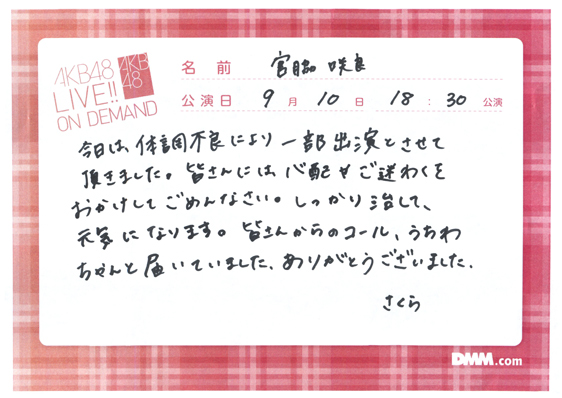 AKB48
LIVE!!
ON DEMAND
AKB
48
名前 宮脇 咲良
公演日 9月10日 18:30公演
今日は体調不良により一部出演とさせて
頂きました。皆さんには心配やご迷わくを
おかけしてごめんなさい。しっかり治して、
元気になります。皆さんからのコール、うちわ
ちゃんと届いていました、ありがとうございました。
さくら
DMM.com